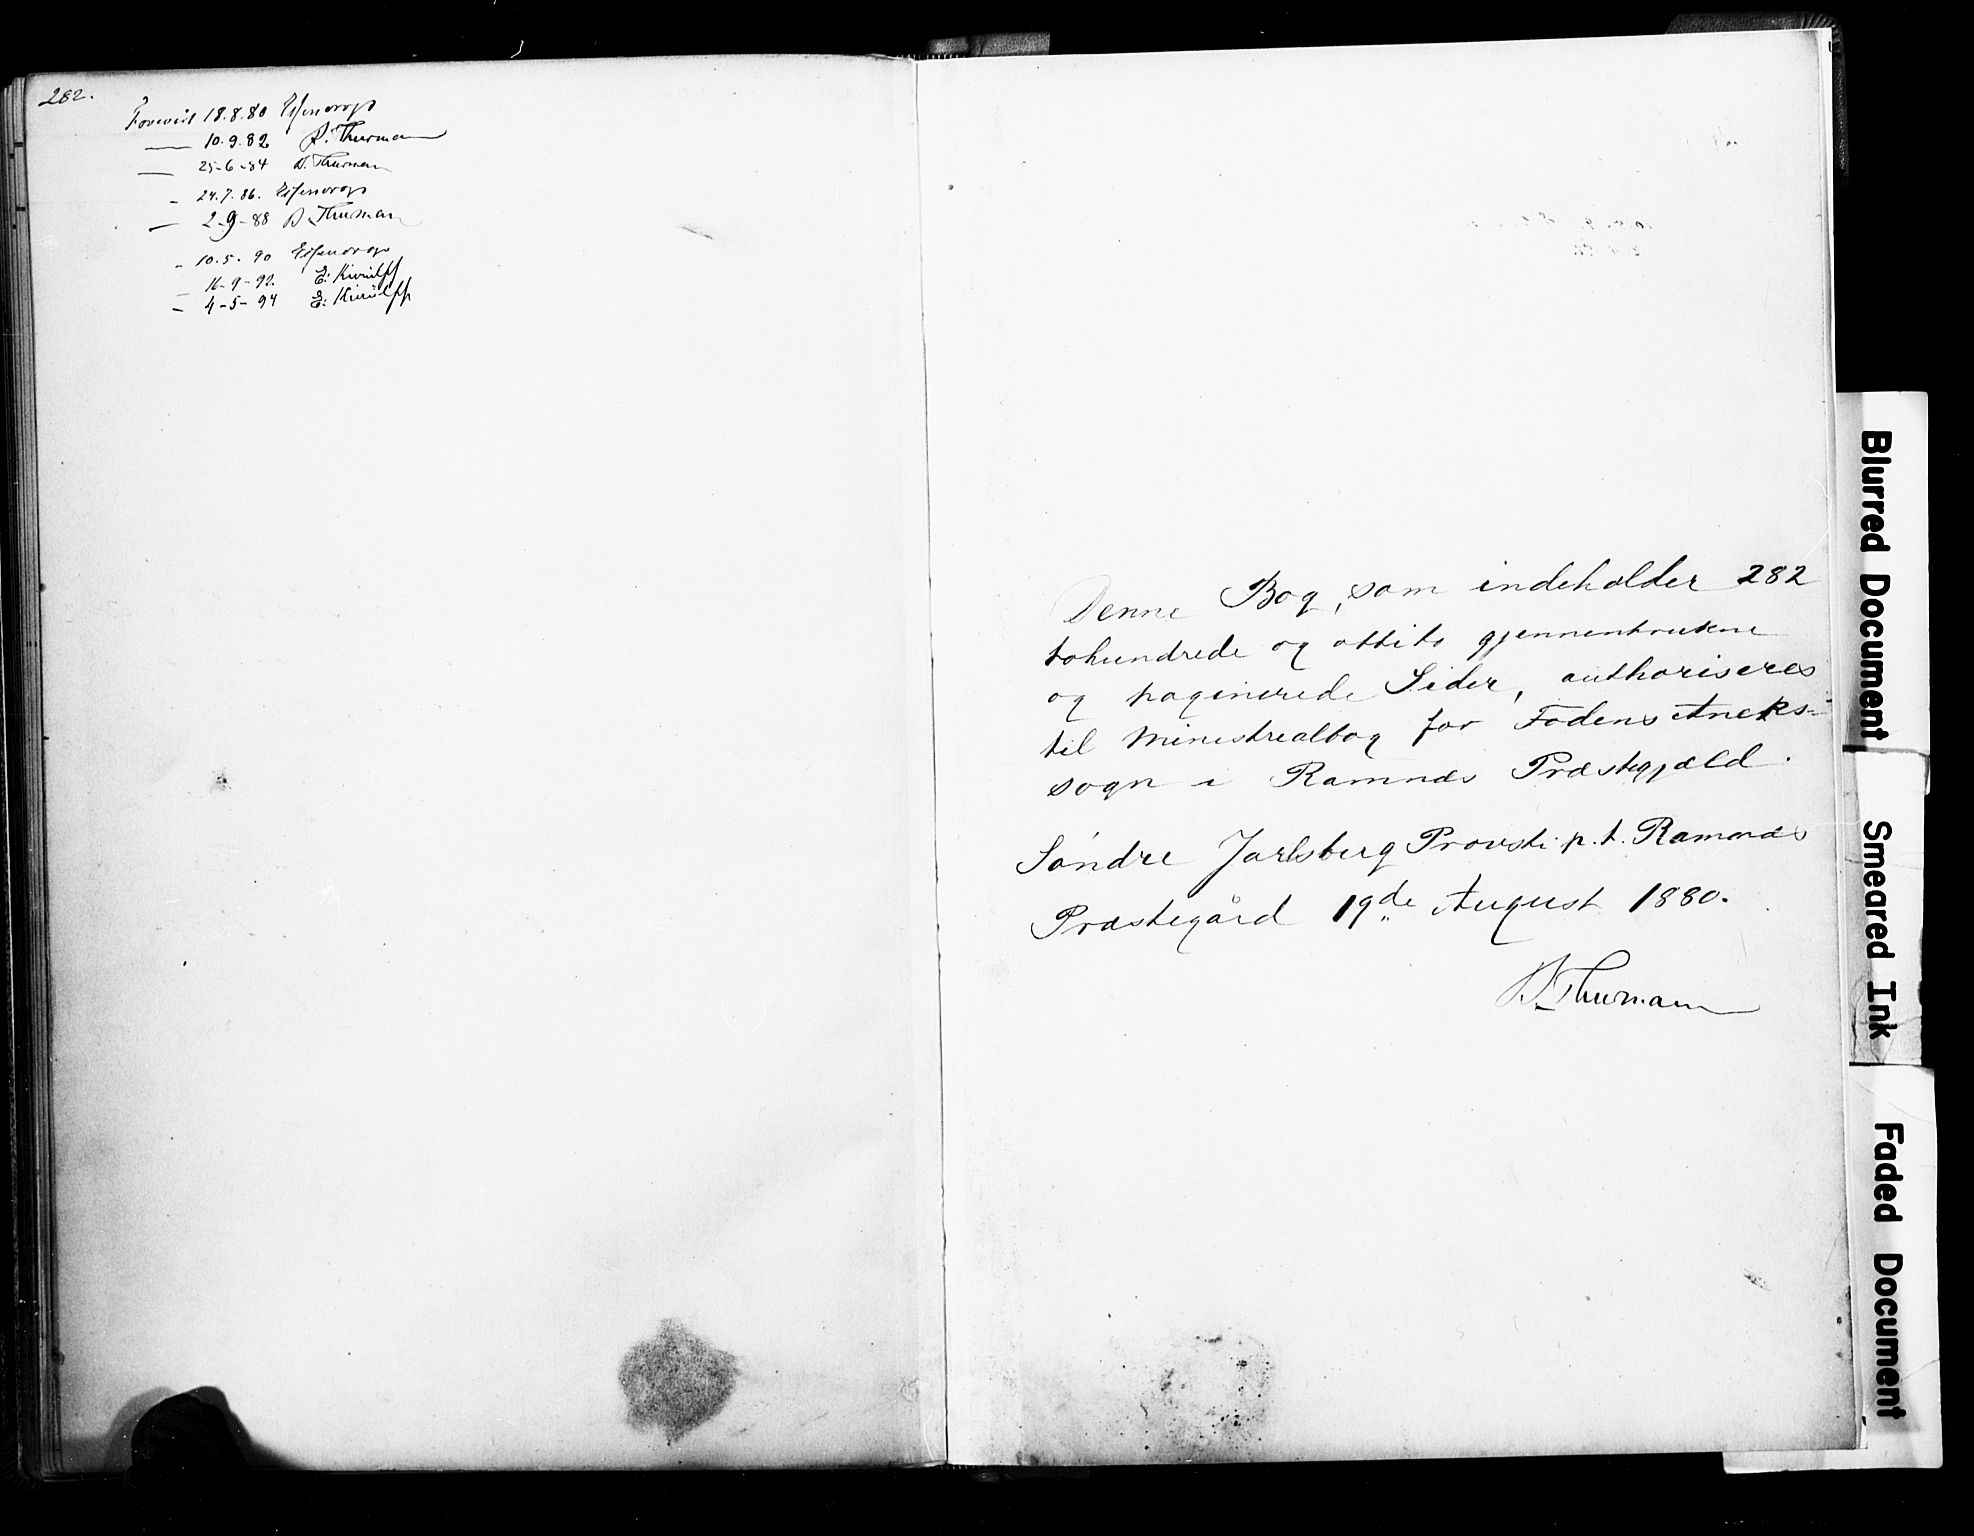 282.
Forevist 18.8.80 Essendrop
— 10.9.82 D. Thurmann
— 25-6-84 D. Thurmann
- 24.7.86. Essendrop
— 2-9-88 D. Thurmann
- 10.5.90 Essendrop
- 16-9-92. E: Kierulff
- 4-5-94 E: Kierulff
Denne Bog, som indeholder 282
tohundrede og otti to gjennemtrukne
og paginerede Sider, authoriseres
til Ministerialbog for Fodens Aneks-
sogn i Ramnæs Præstegjæld.
Søndre Jarlsberg Provsti p.t. Ramnæs
Præstegård 19de August 1880.
D. Thurmann
Blurred Document
Smeared Ink
Faded Document